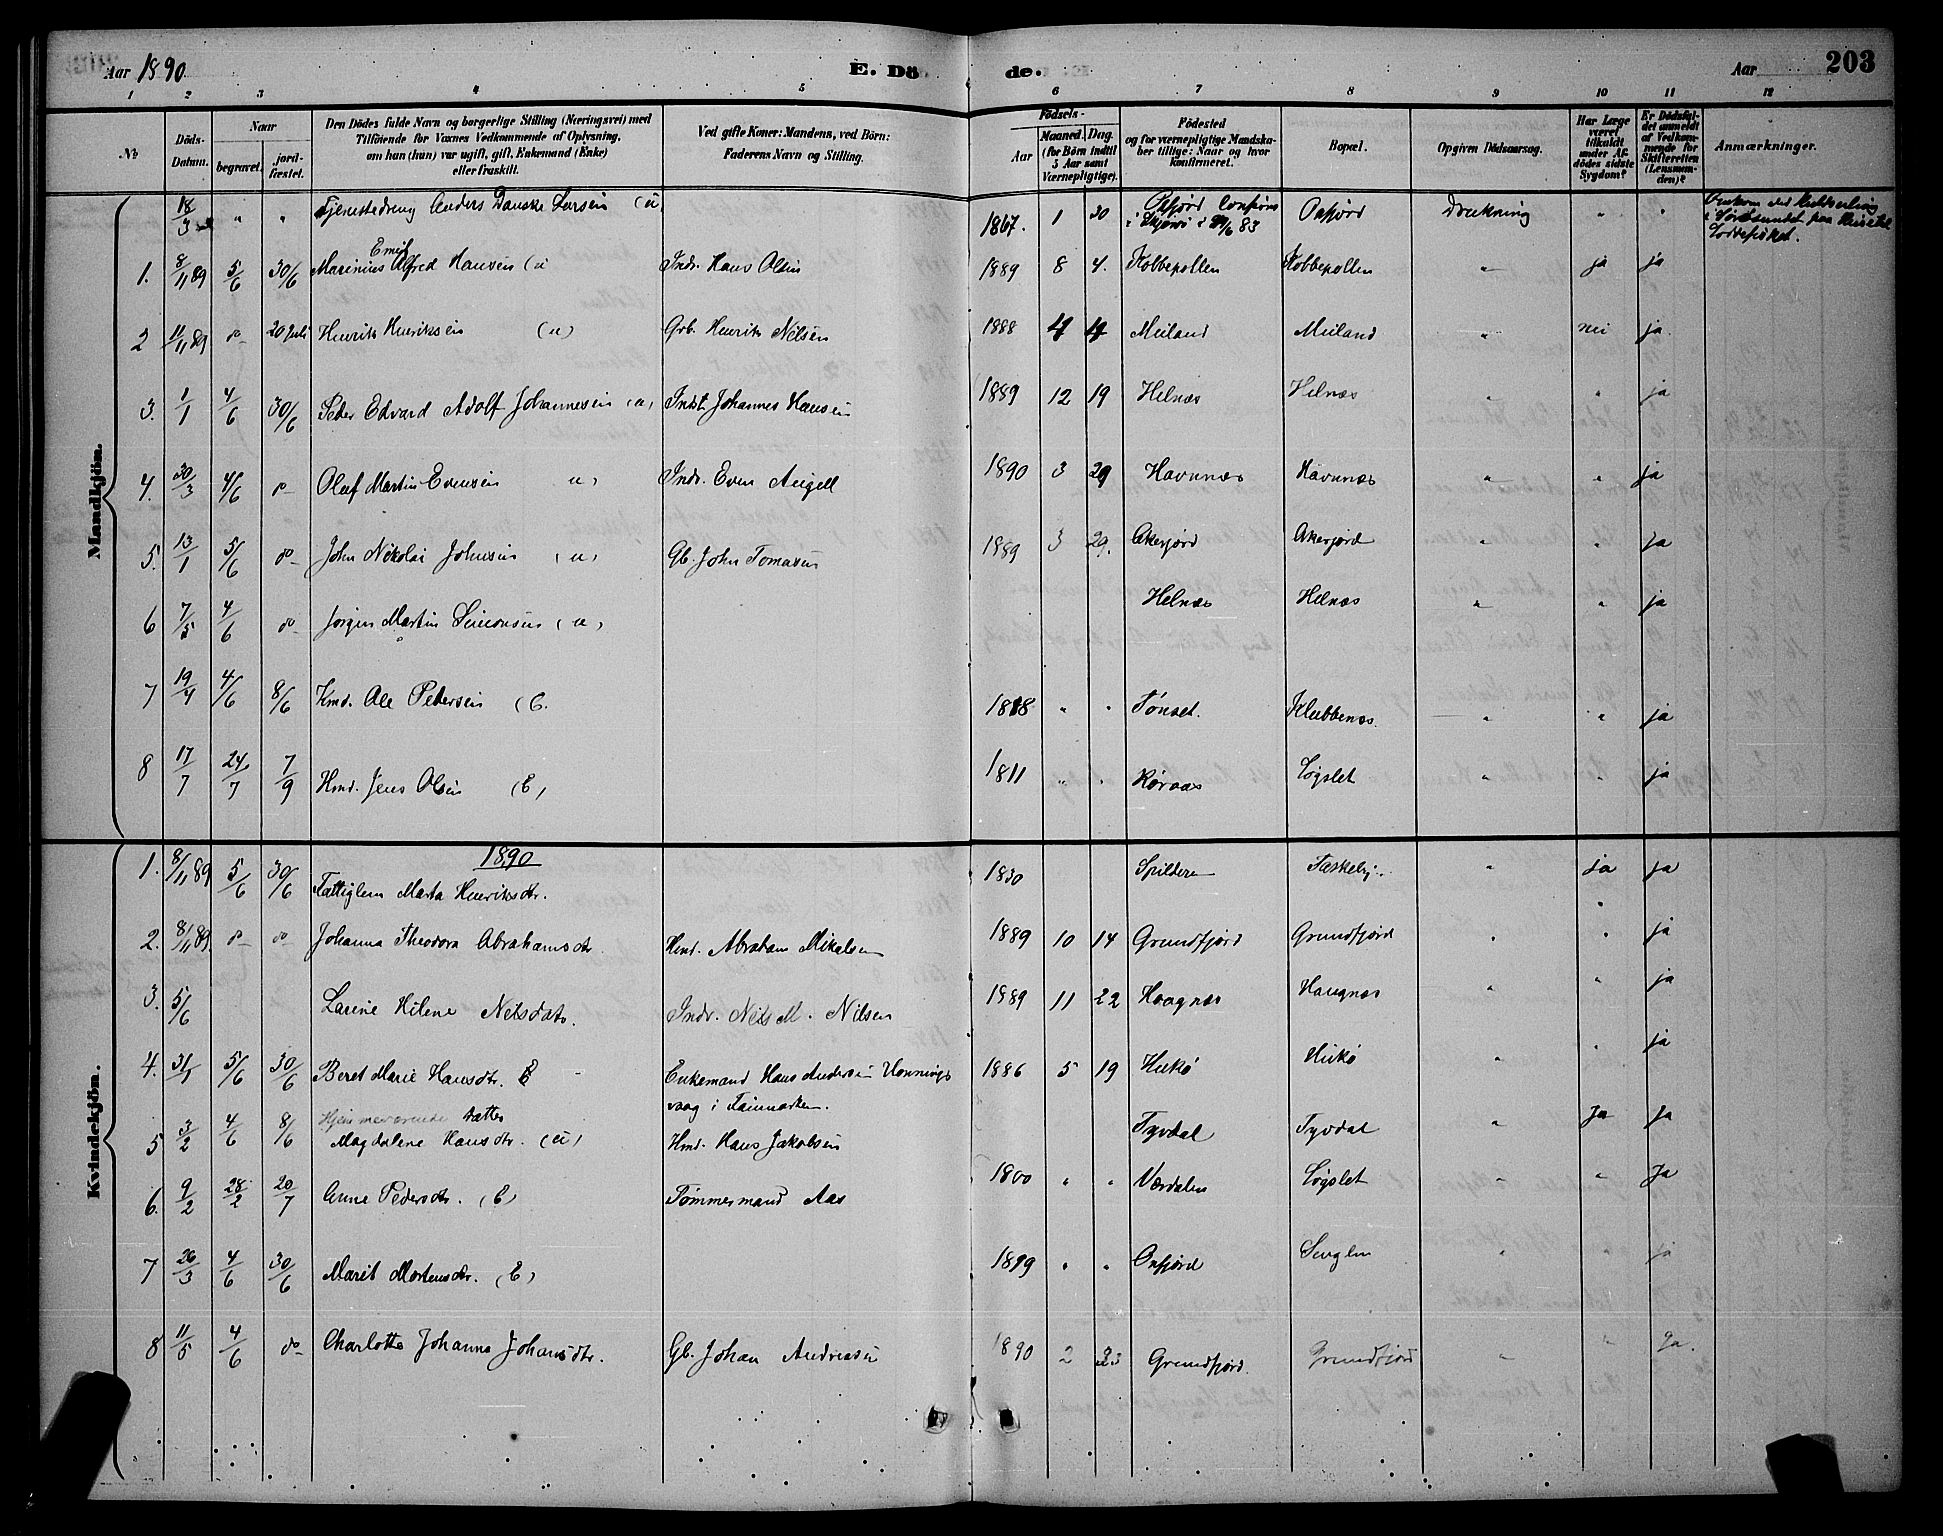 Aar 1890
E. Dö de.
Aar 203
1 2 3 4 5 6 7 8 9 10 11 12
No
Döds-Datum.
Naar
begravet.
jord-fæstet.
Den Dödes fulde Navn og borgerlige Stilling (Næringsvei) med
Tilföiende for Voxnes Vedkommende af Oplysning,
om han (hun) var ugift, gift, Enkemand (Enke)
eller fraskilt.
Ved gifte Koner: Mandens, ved Börn:
Faderens Navn og Stilling.
Födsels-
Aar
Maaned. Dag.
(for Börn indtil
5 Aar samt
Værnepligtige).
Födested
og for værnepligtige Mandska-
ber tillige: Naar og hvor
konfirmeret.
Bopæl.
Opgiven Dödsaarsag.
Har Læge
været
tilkaldt
under Af-
dödes sidste
Sygdom?
Er Dödsfal-
det anmeldt
af Vedkom-
mende for
Skifteretten
(Lensman-
den)?
Anmærkninger.
Mandkjön.
18/3 " " Tjenestedreng Anders Danske Larsen (u) 1867. 1 20 Oxfjord Drukning " "
i Skjervö 83
Emil
1. 8/11 89 5/6 30/6 Marinius Alfred Hansen (u Indr. Hans Olsen 1889 8 4. Kobbepollen Kobbepollen " ja ja
2 11/11 89 do 20 Juli Henrik Henriksen (u) Grb. Henrik Nilsen 1888 4 4 Meiland Meiland " nei ja
3. 1/1 4/6 30/6 Peder Edvard Adolf Johannesen (u) Indst. Johannes Hansen 1889 12 19 Helnæs Helnæs " " ja
4. 30/3 4/6 do Oluf Martin Evensen (u) Indr. Even Angell 1890 3 29 Havnnæs Havnnæs " " ja
5. 13/1 5/6 do John Nikolai Johnsen (u) Gb. John Tomasen 1889 3 29. Akerfjord Akerfjord " " ja
6 7/5 4/6 do Jørgen Martin Simonsen (u) Helnæs Helnæs " " ja
7 19/4 4/6 8/6 Kmd. Ole Petersen (E. 1818 " " Tønset. Klubbenæs. " " ja
8 17/7 24/7 7/9 Hmd. Jens Olsen (E) 1811 " " Røraas Løgslet " " ja
Kvindekjön.
1890
1. 8/11 89 5/6 30/6 Fattiglem Marta Henriksdtr. 1830 Spildern Taskeby " ja ja
2. 8/11 89 do do Johanna Theodora Abrahamsdtr Hmd. Abraham Mikalsen 1889 10 14 Grundfjord Grundfjord " " ja
3. 5/6 Larine Helene Nelsdatr. Indr. Nils M. Nilsen 1889 11 22 Haugnæs Haugnæs " " ja
4. 31/1 5/6 30/6 Beret Marie Hansdtr. E Enkemand Hans Andersen Honnings- 1886 5 19 Hukø Hukø " " ja
vaag i Finmarken.
Hjemmeværende datter
5 3/2 4/6 8/6 Magdalene Hansdtr. (u) Hmd. Hans Jakobsen Tyvdal Tyvdal " Ja ja
6. 9/2 28/2 20/7 Anne Pedersdtr. (E) Tømmermand Aas 1800 " " Værdalen Løgslet " " Ja
7 26/3 4/6 30/6 Marit Mortensdtr. (E) 1819 " " Oxfjord " " ja
8 11/5 4/6 do Charlotte Johanna Johansdtr. Gb. Johan Andreasen 1890 2 23 Grundfjord. Grundfjord " " ja.